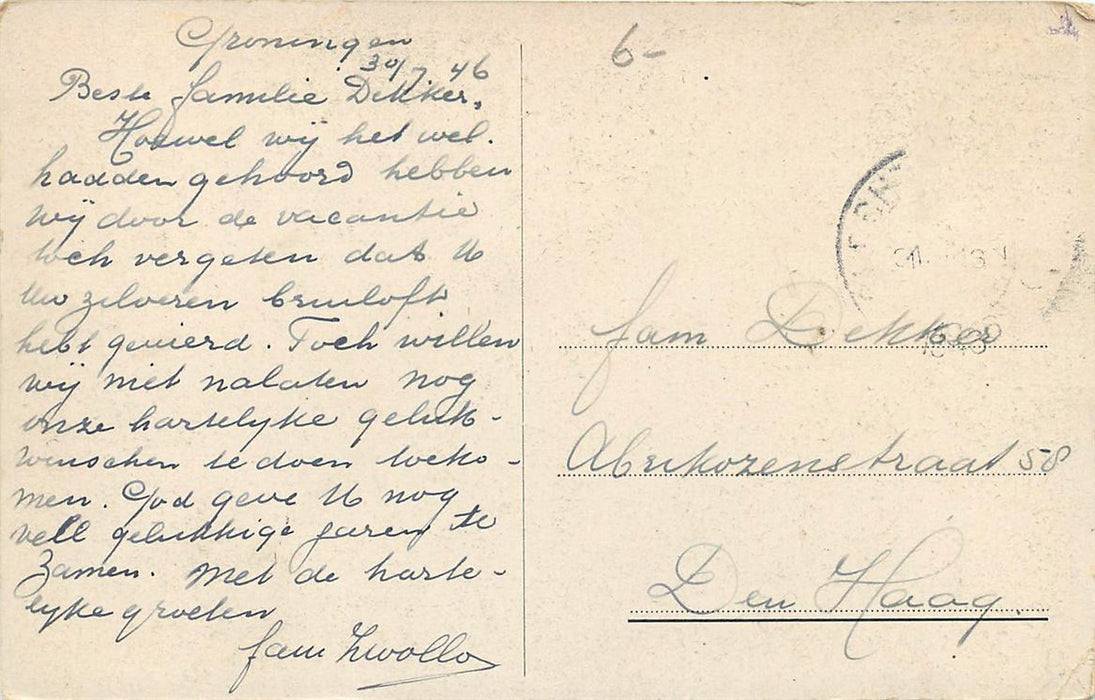 Groningen
30/7 46
Beste familie Dekker,
Hoewel wij het wel.
hadden gehoord hebben
wij door de vacantie
toch vergeten dat U
Uw zilveren bruiloft
hebt gevierd. Toch willen
wij niet nalaten nog
onze hartelyke geluk-
wenschen te doen toeko-
men. God geve U nog
vell gelukkige jaren te
Zamen. Met de harte-
lyke groeten
fam Zwollo
6-
fam Dekker
Abrikozenstraat 58
Den Haag